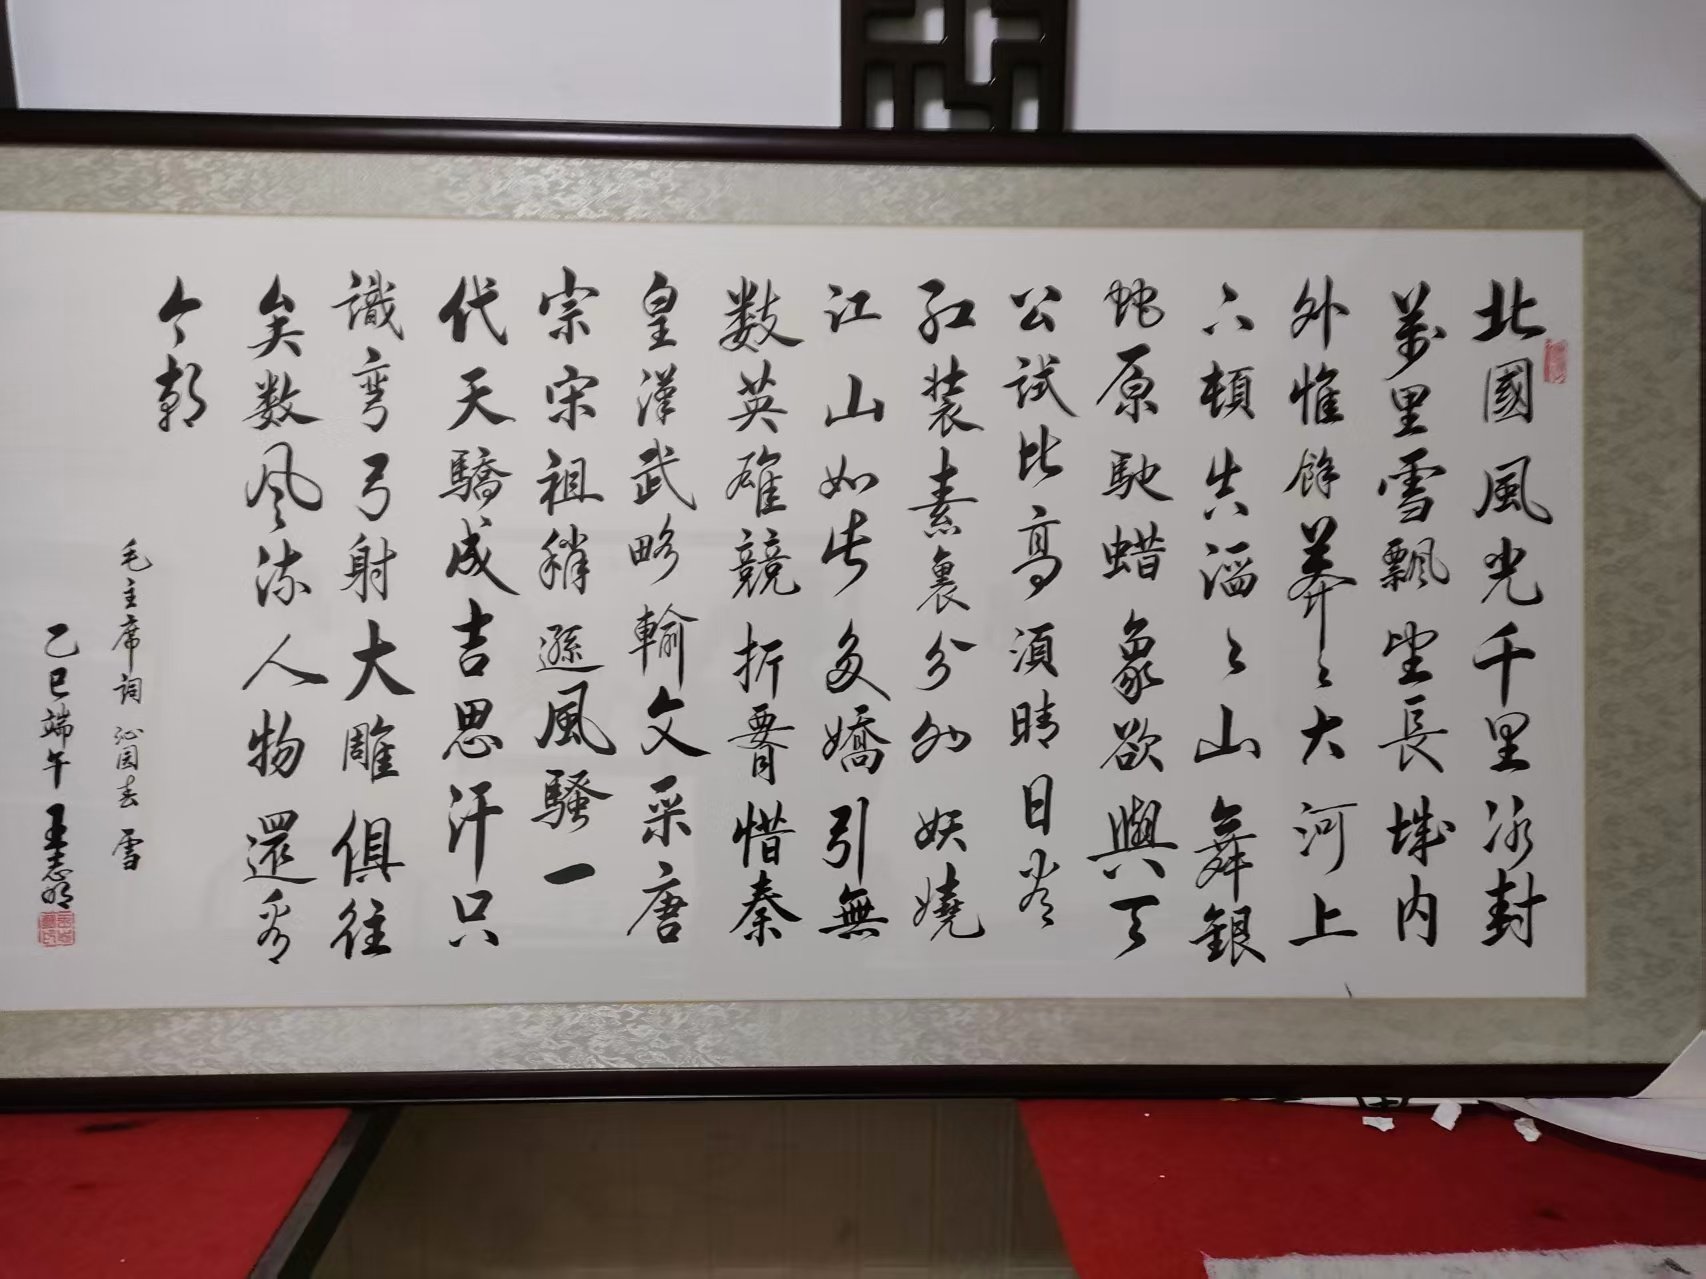 北國風光千里冰封
萬里雪飄望長城内
外惟餘莽〻大河上
下頓失滔〻山舞銀
蛇原馳蜡象欲與天
公試比高須晴日看
紅装素裹分外妖嬈
江山如此多嬌引無
数英雄競折腰惜秦
皇漢武略輸文采唐
宗宋祖稍遜風騷一
代天驕成吉思汗只
識彎弓射大雕俱往
矣数风流人物還看
今朝
毛主席詞沁园春雪
乙巳端午王志明